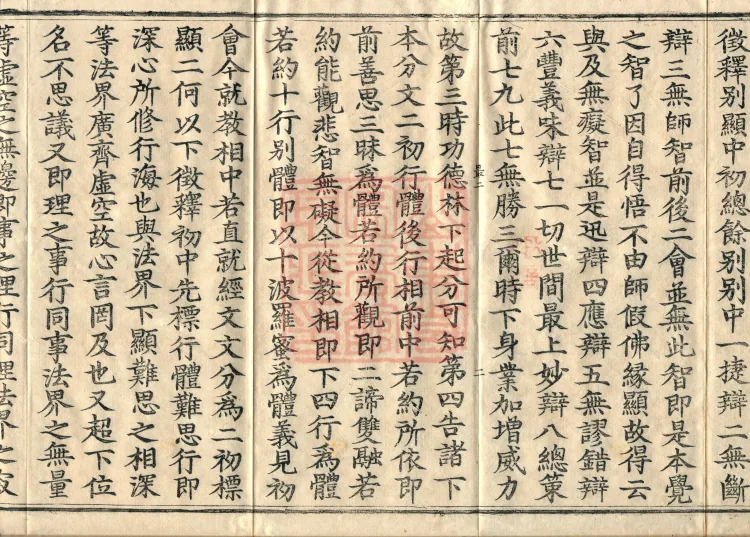 徵釋別顯中初總餘別別中一捷辯二無斷
辯三無師智前後二會並無此智即是本覺
之智了因自得悟不由師假佛緣顯故得云
與及無癡智並是迅辯四應辯五無謬錯辯
六豐義味辯七一切世間最上妙辯八總策
前七九此七無勝三爾時下身業加增威力
故第三時功德林下起分可知第四告諸下
本分文二初行體後行相前中若約所依即
前善思三昧為體若約所觀即二諦雙融若
約能觀悲智無礙今從教相即下四行為體
若約十行別體即以十波羅蜜為體義見初
會今就教相中若直就經文文分為二初標
顯二何以下徵釋初中先標行體難思行即
深心所修行海也與法界下顯難思之相深
等法界廣齊虛空故心言罔及也又超下位
名不思議又即理之事行同事法界之無量
等虛空之無邊即事之理行同理法界之